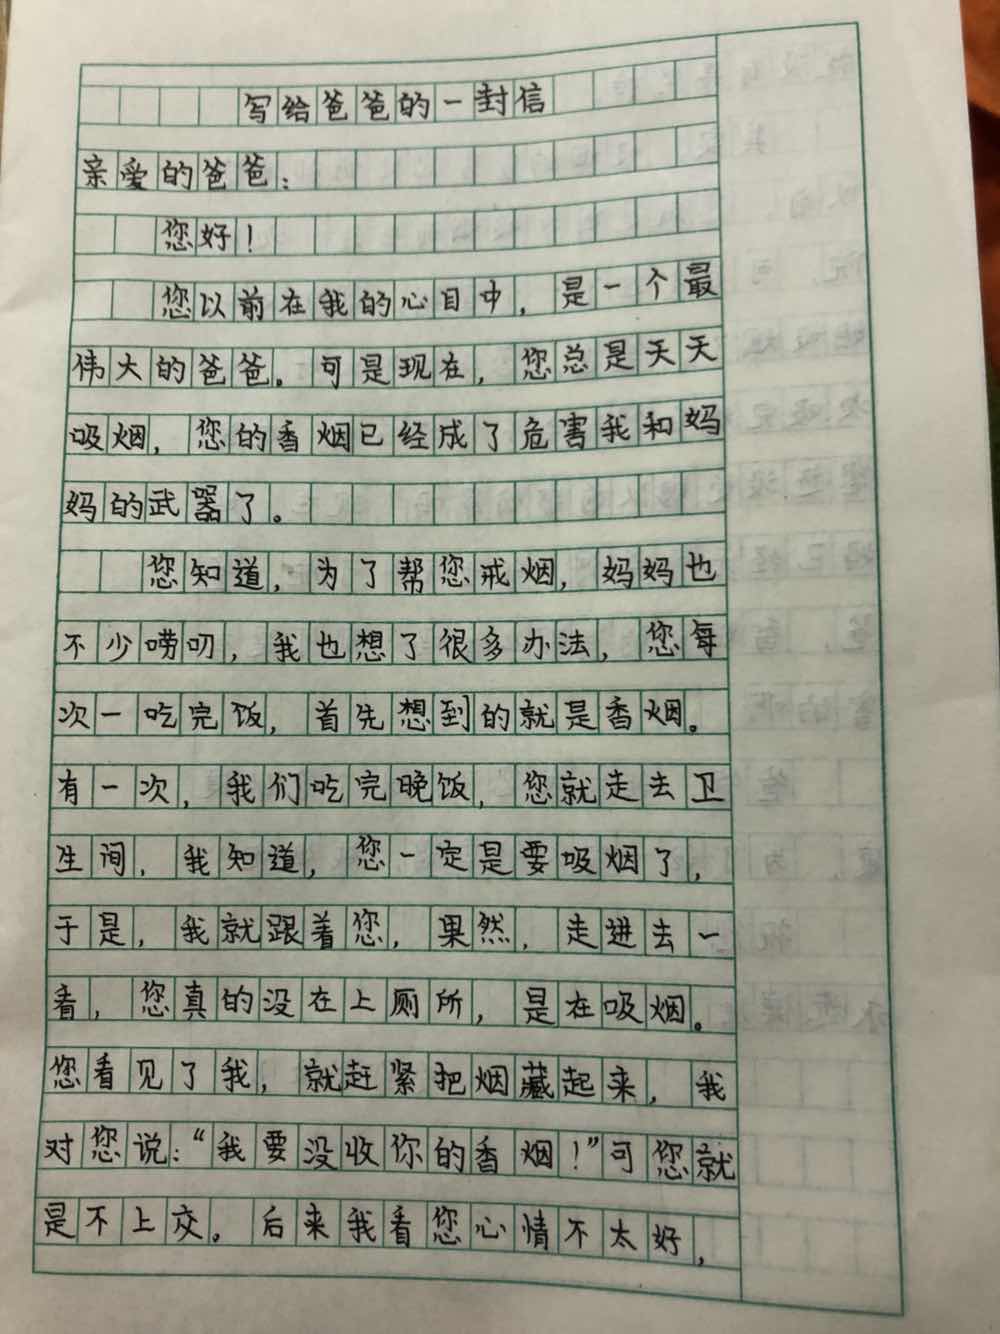 写给爸爸的一封信
亲爱的爸爸：
您好！
您以前在我的心目中，是一个最
伟大的爸爸。可是现在，您总是天天
吸烟，您的香烟已经成了危害我和妈
妈的武器了。
您知道，为了帮您戒烟，妈妈也
不少唠叨，我也想了很多办法，您每
次一吃完饭，首先想到的就是香烟。
有一次，我们吃完晚饭，您就走去卫
生间，我知道，您一定是要吸烟了，
于是，我就跟着您，果然，走进去一
看，您真的没在上厕所，是在吸烟。
您看见了我，就赶紧把烟藏起来，我
对您说：“我要没收你的香烟！”可您就
是不上交。后来我看您心情不太好，